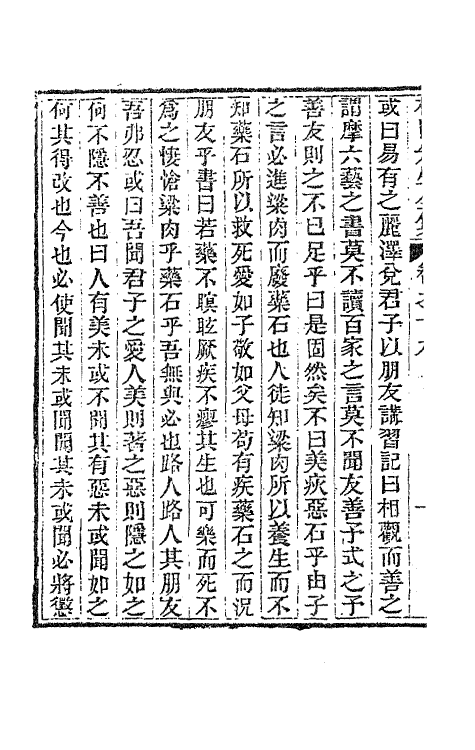 或曰易有之麗澤兌君子以朋友講習記曰相觀而善之
謂摩六藝之書莫不讀百家之言莫不聞友善予式之予
善友則之不已足乎曰是固然矣不曰美疢惡石乎由子
之言必進粱肉而廢藥石也人徒知粱肉所以養生而不
知藥石所以救死愛如子敬如父母苟有疾藥石之而況
朋友乎書曰若藥不瞑眩厥疾不瘳其生也可樂而死不
爲之悽愴粱肉乎藥石乎吾無與必也路人路人其朋友
吾弗忍或曰吾聞君子之愛人美則著之惡則隱之如之
何不隱不善也曰人有美未或不聞其有惡未或聞如之
何其得改也今也必使聞其未或聞聞其未或聞必將懲